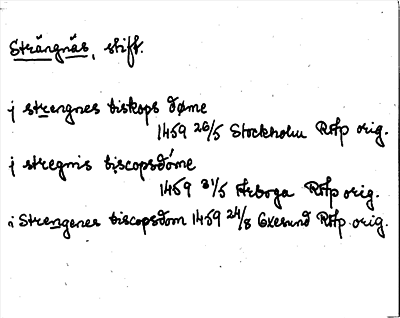 Strängnäs, stift.
j strengnes biskops døme
1459 26/5 Stockholm RAp orig.
j stregnis biscopsdóme
1459 31/5 Arboga RAp orig.
i Strengenes biscopsdom 1459 24/8 Exesund RAp orig.